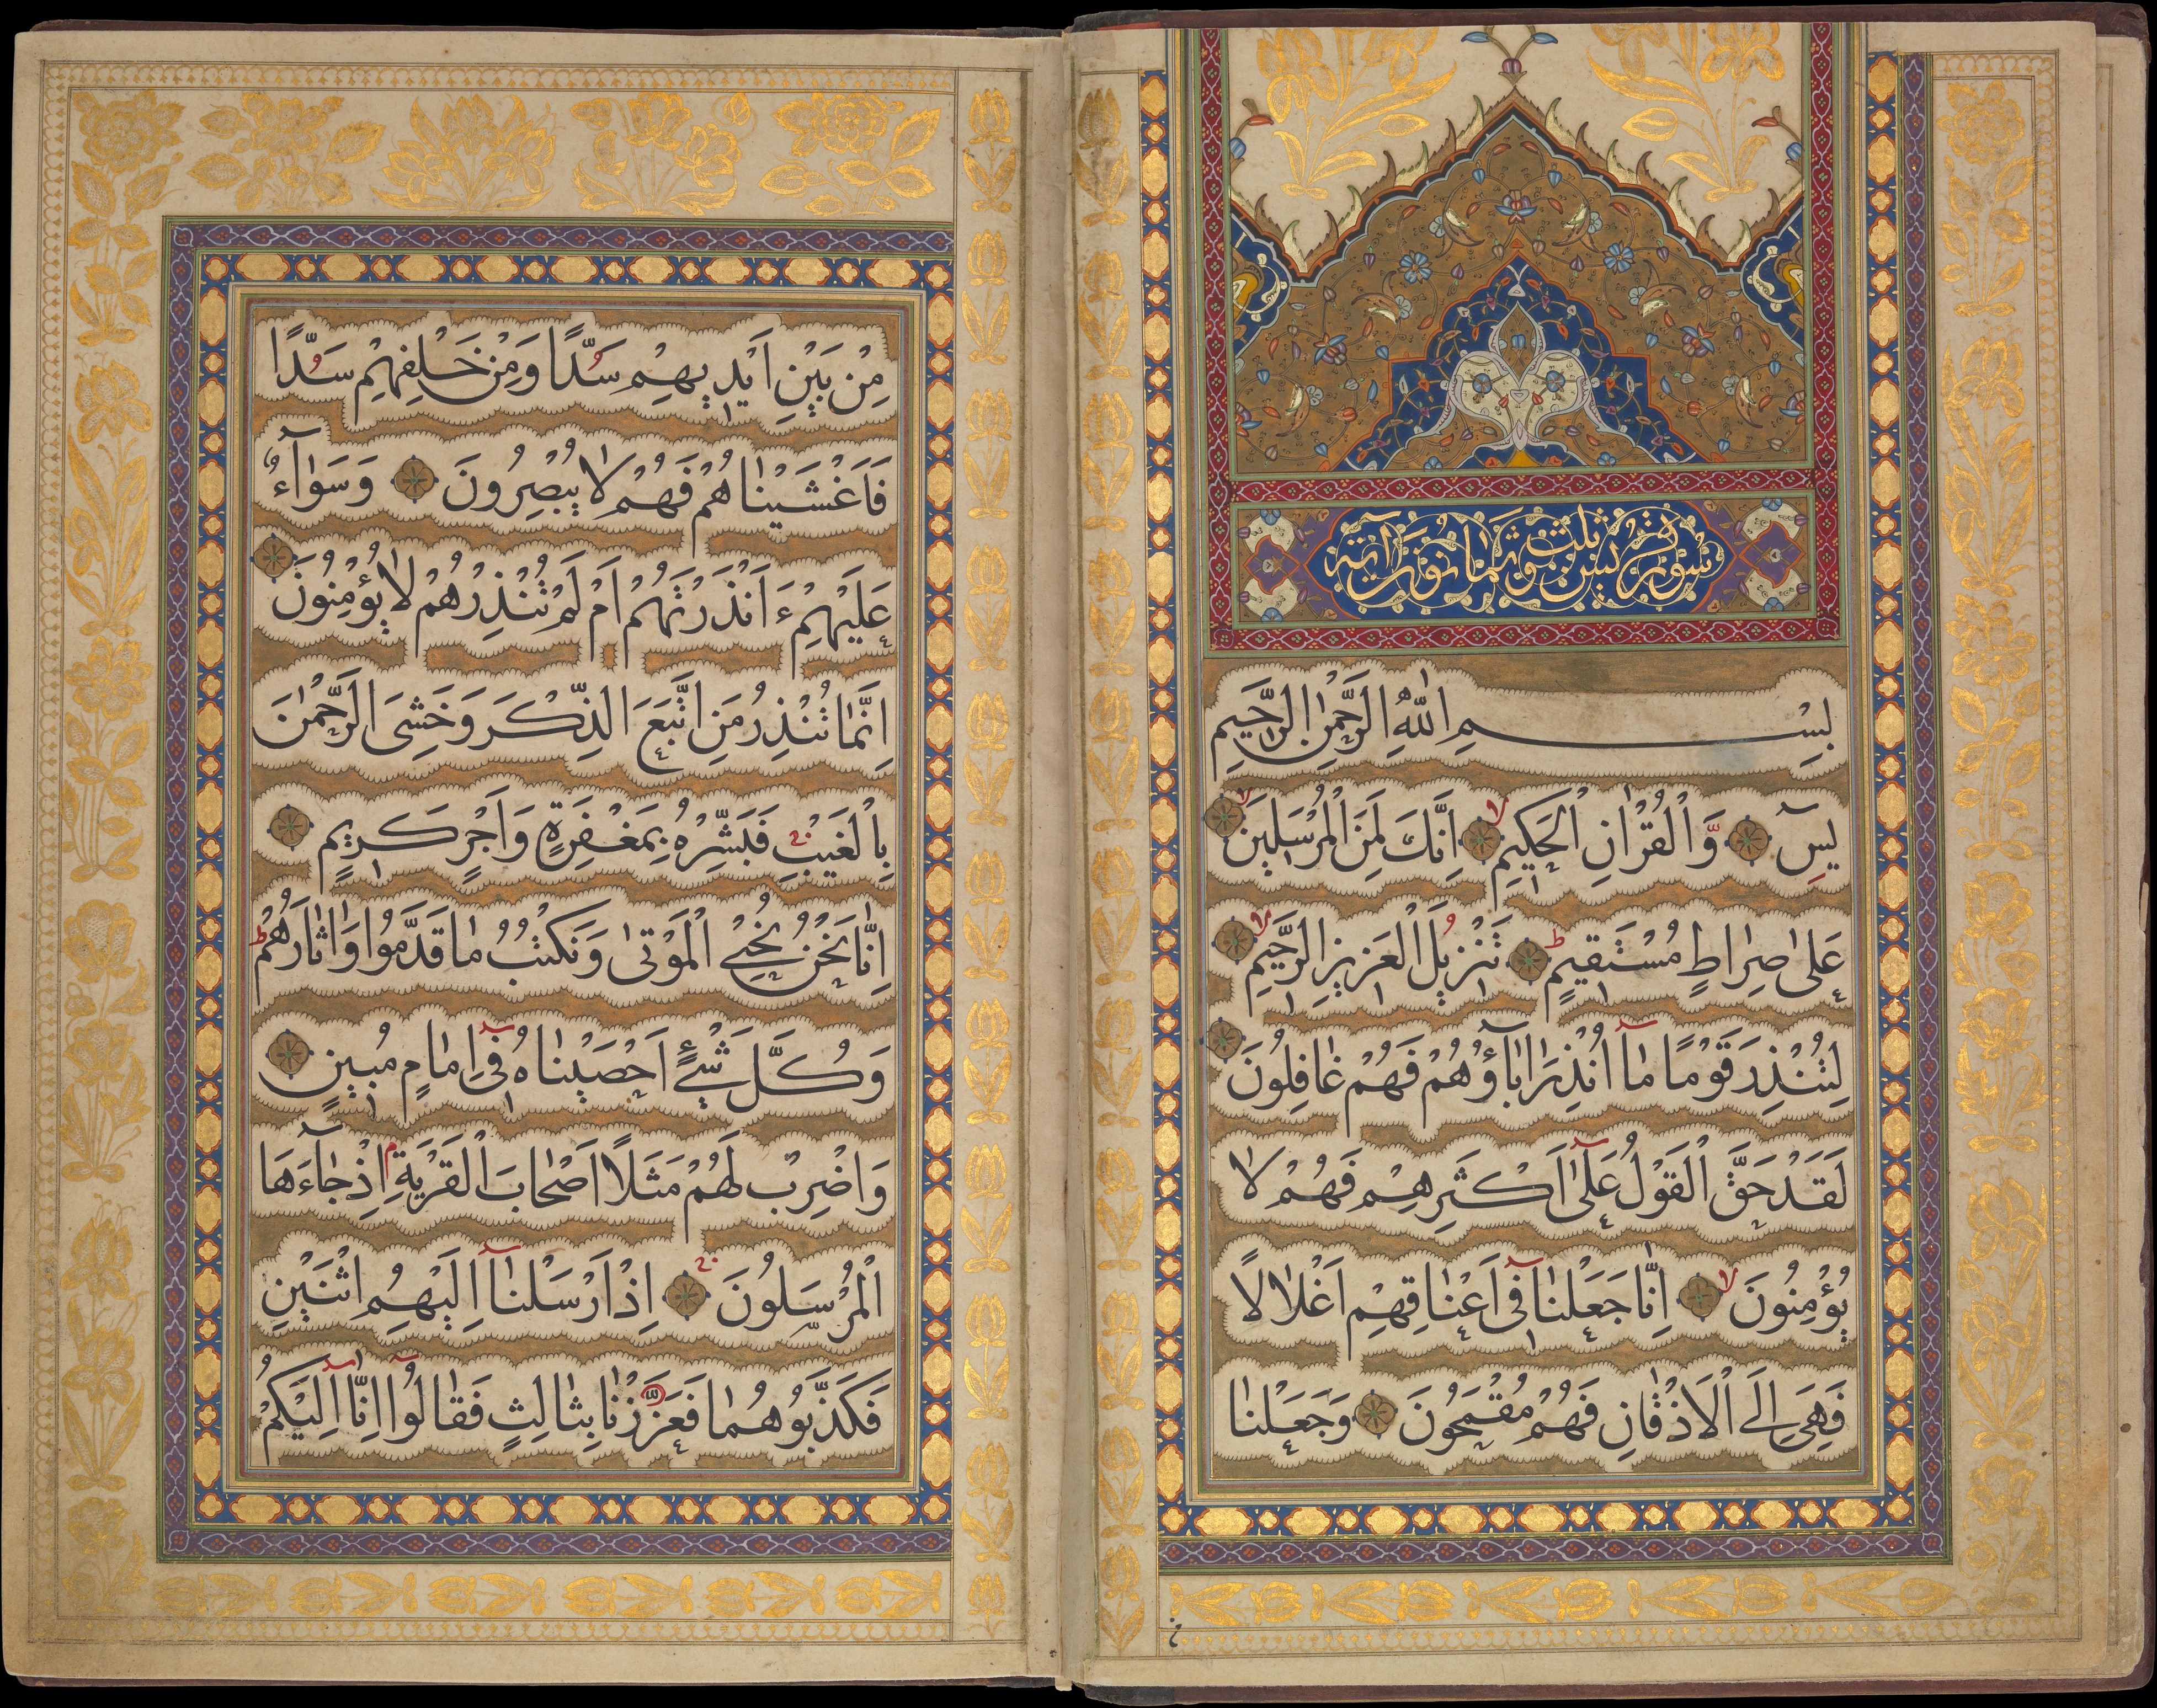 سورة يس ثلث وثمانون آية
بِسْمِ اللّٰهِ الرَّحْمٰنِ الرَّحٖيمِ
يٰسٓ وَالْقُرْاٰنِ الْحَكٖيمِ اِنَّكَ لَمِنَ الْمُرْسَلٖينَ
عَلٰى صِرٰاطٍ مُسْتَقٖيمٍ تَنْزٖيلَ الْعَزٖيزِ الرَّحٖيمِ
لِتُنْذِرَ قَوْمًا مٰآ اُنْذِرَ اٰبٰٓاؤُهُمْ فَهُمْ غٰافِلُونَ
لَقَدْ حَقَّ الْقَوْلُ عَلٰٓى اَكْثَرِهِمْ فَهُمْ لٰا
يُؤْمِنُونَ اِنّٰا جَعَلْنٰا فٖٓى اَعْنٰاقِهِمْ اَغْلٰالًا
فَهِىَ اِلَى الْاَذْقٰانِ فَهُمْ مُقْمَحُونَ وَجَعَلْنٰا
مِنْ بَيْنِ اَيْدٖيهِمْ سَدًّا وَمِنْ خَلْفِهِمْ سَدًّا
فَاَغْشَيْنٰاهُمْ فَهُمْ لٰا يُبْصِرُونَ وَسَوٰٓاءٌ
عَلَيْهِمْ ءَاَنْذَرْتَهُمْ اَمْ لَمْ تُنْذِرْهُمْ لٰا يُؤْمِنُونَ
اِنَّمٰا تُنْذِرُ مَنِ اتَّبَعَ الذِّكْرَ وَخَشِىَ الرَّحْمٰنَ
بِالْغَيْبِ فَبَشِّرْهُ بِمَغْفِرَةٍ وَاَجْرٍ كَرٖيمٍ
اِنّٰا نَحْنُ نُحْيِى الْمَوْتٰى وَنَكْتُبُ مٰا قَدَّمُوا وَاٰثٰارَهُمْ
وَكُلَّ شَىْءٍ اَحْصَيْنٰاهُ فٖٓى اِمٰامٍ مُبٖينٍ
وَاضْرِبْ لَهُمْ مَثَلًا اَصْحٰابَ الْقَرْيَةِ اِذْ جٰٓاءَهَا
الْمُرْسَلُونَ اِذْ اَرْسَلْنٰٓا اِلَيْهِمُ اثْنَيْنِ
فَكَذَّبُوهُمٰا فَعَزَّزْنٰا بِثٰالِثٍ فَقٰالُوٓا اِنّٰٓا اِلَيْكُمْ